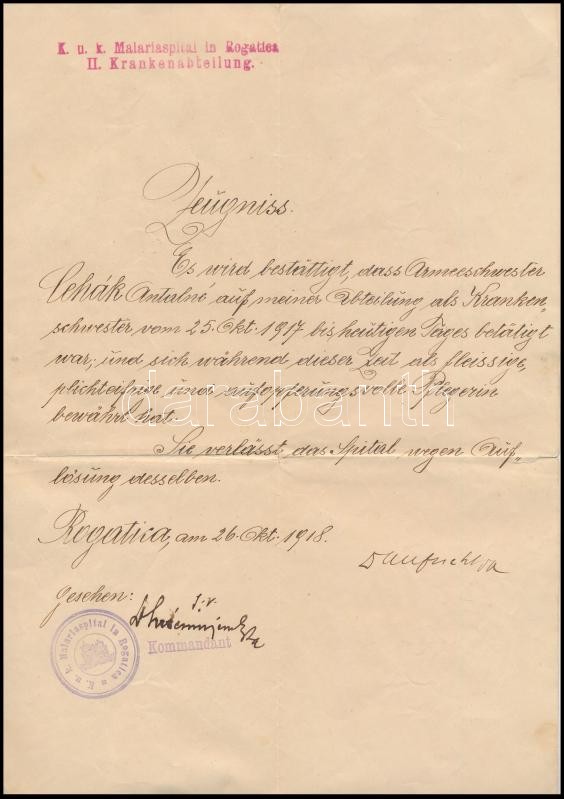 K. u. k. Malariaspital in Rogatica
II. Krankenabteilung.
Zeugniss.
Es wird bestättigt, dass Armeeschwester
Cehák Antalné auf meiner Abteilung als Kranken-
schwester vom 25. Okt. 1917 bis heutigen Tages betätigt
war; und sich während dieser Zeit als fleissige,
plichteifrige und aufopferungsvolle Pflegerin
bewährt hat.
darabanth
Sie verlässt das Spital, wegen Auf-
lösung desselben.
Rogatica, am 26. Okt. 1918.
Gesehen:
Kommandant
K. u. k. Malariaspital in Rogatica